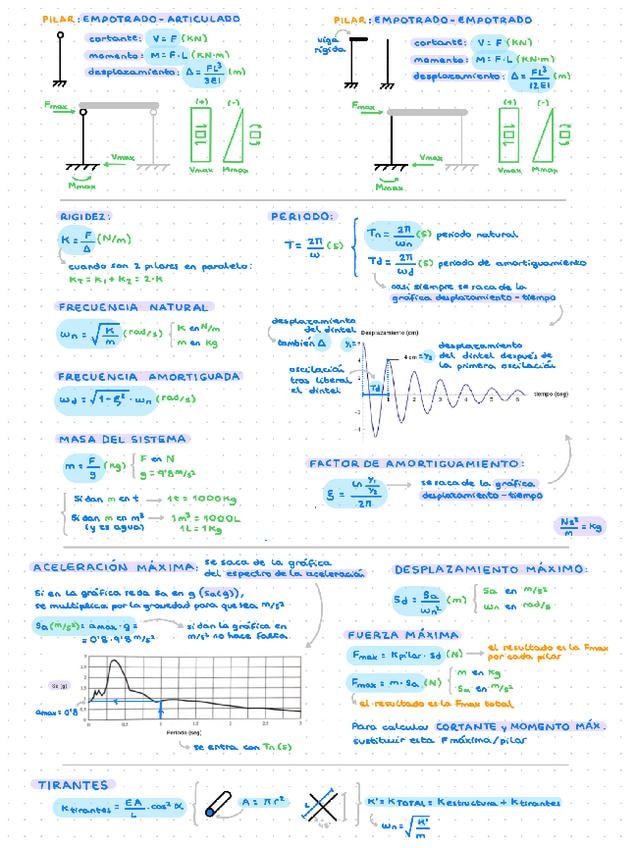 PILAR: EMPOTRADO-ARTICULADO
cortante: V = F (KN)
momento: M = F·L (KN·m)
desplazamiento: Δ = FL³/3EI (m)
Fmax
Vmax
Mmax
(+)
(-)
Vmax
Mmax
PILAR: EMPOTRADO-EMPOTRADO
viga
rígida
cortante: V = F (KN)
momento: M = F·L (KN·m)
desplazamiento: Δ = FL³/12EI (m)
Fmax
Vmax
Mmax
(+)
(-)
Vmax
Mmax
RIGIDEZ:
K = F/Δ (N/m)
cuando son 2 pilares en paralelo:
KT = K1 + K2 = 2·K
PERIODO:
T = 2π/ω (s)
Tn = 2π/ωn (s) periodo natural
Td = 2π/ωd (s) periodo de amortiguamiento
casi siempre se saca de la
gráfica desplazamiento-tiempo
FRECUENCIA NATURAL
ωn = √K/m (rad/s)
K en N/m
m en Kg
FRECUENCIA AMORTIGUADA
ωd = √1-ξ² · ωn (rad/s)
desplazamiento
del dintel
también Δ
Desplazamiento (cm)
4 cm = y2
desplazamiento
del dintel después de
la primera oscilación
oscilación
tras liberal
el dintel
Td
tiempo (seg)
MASA DEL SISTEMA
m = F/g (Kg)
F en N
g = 9'8 m/s²
Si dan m en t → 1t = 1000Kg
Si dan m en m³ → 1m³ = 1000L
(y es agua) 1L = 1Kg
FACTOR DE AMORTIGUAMIENTO:
ξ = ln y1/y2 / 2π
se saca de la gráfica
desplazamiento-tiempo
Ns²/m = Kg
ACELERACIÓN MÁXIMA: se saca de la gráfica
del espectro de la aceleración
Si en la gráfica te da Sa en g (Sa(g)),
se multiplica por la gravedad para que sea m/s²
Sa(m/s²) = amax·g =
= 0'8·9'8 m/s²
si dan la gráfica en
m/s² no hace falta.
Sa (g)
amax = 0'8
Periodo (seg)
se entra con Tn (s)
DESPLAZAMIENTO MÁXIMO:
Sd = Sa/ωn² (m)
Sa en m/s²
ωn en rad/s
FUERZA MÁXIMA
Fmax = Kpilar · Sd (N) → el resultado es la Fmax
por cada pilar
Fmax = m·Sa (N)
m en Kg
Sa en m/s²
el resultado es la Fmax total
Para calcular CORTANTE y MOMENTO MÁX.
sustituir esta F máxima/pilar
TIRANTES
Ktirantes = EA/L · cos² α
A = πr²
45°
K' = KTOTAL = Kestructura + Ktirantes
ωn = √K'/m